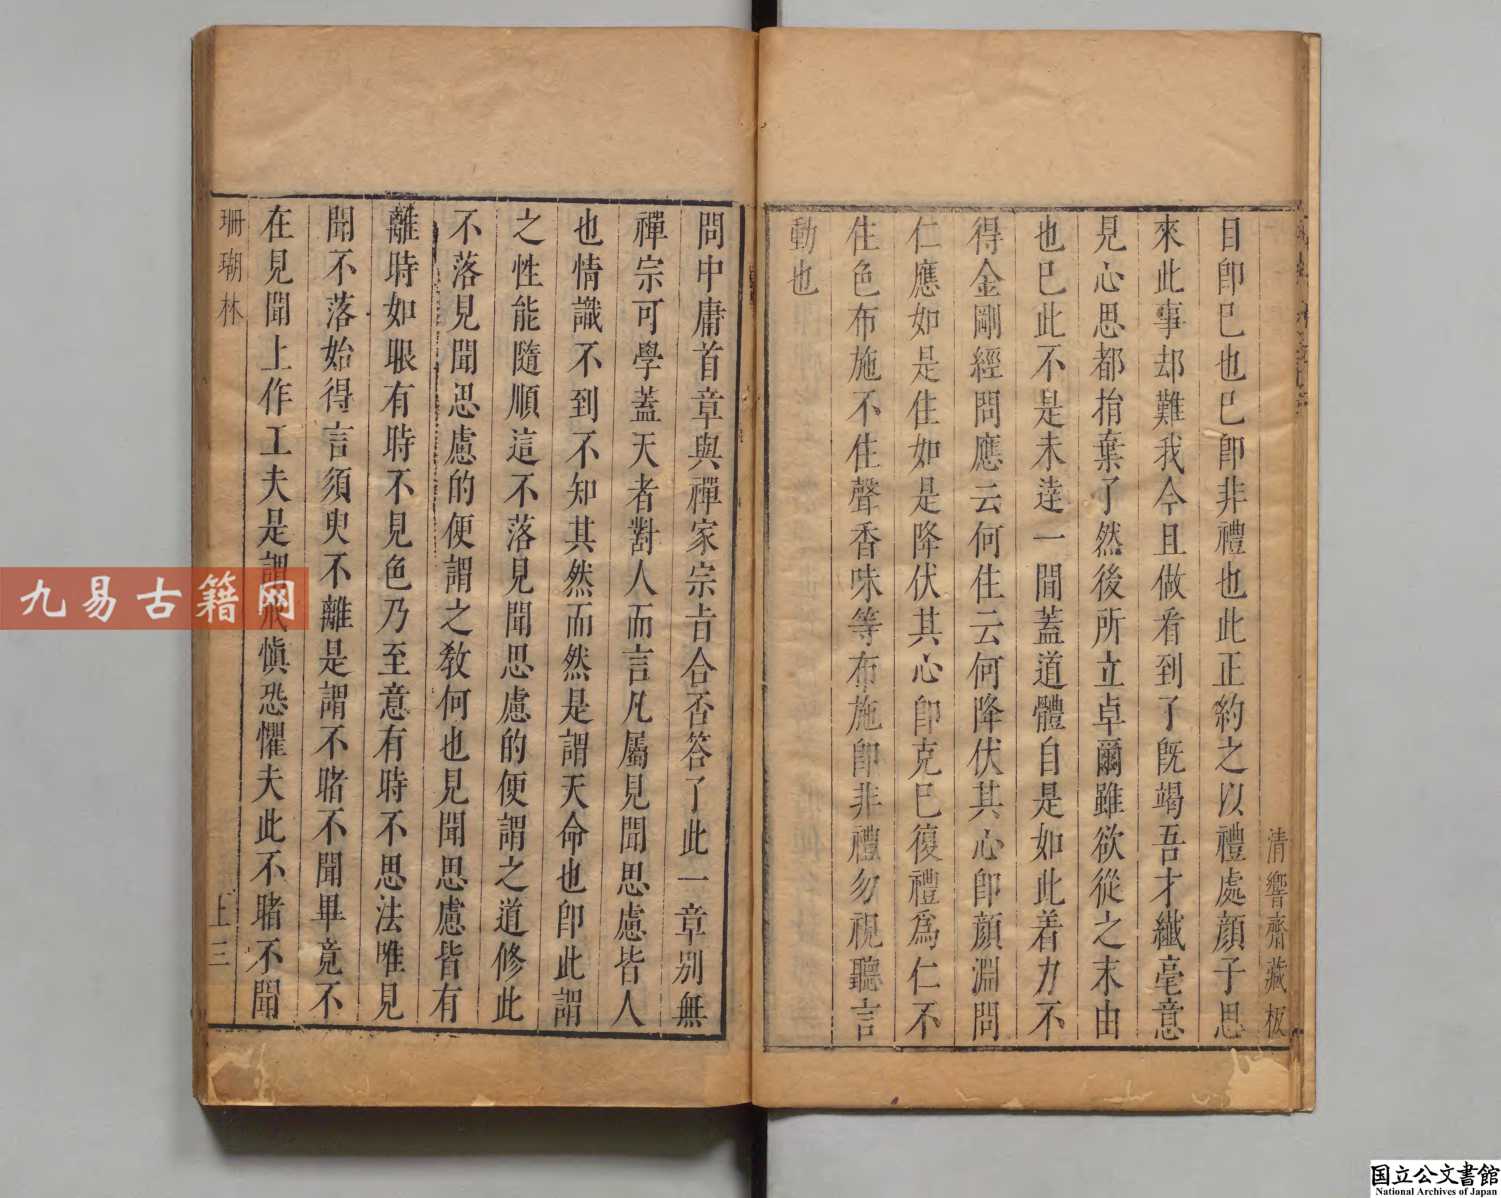 清響齋藏板
目卽已也已卽非禮也此正約之以禮處顔子思
來此事却難我今且做看到了旣竭吾才纖毫意
見心思都捐棄了然後所立卓爾雖欲從之末由
也已此不是未達一間蓋道體自是如此着力不
得金剛經問應云何住云何降伏其心卽顔淵問
仁應如是住如是降伏其心卽克已復禮爲仁不
住色布施不住聲香味等布施卽非禮勿視聽言
動也
問中庸首章與禪家宗旨合否答了此一章別無
禪宗可學蓋天者對人而言凡屬見聞思慮皆人
也情識不到不知其然而然是謂天命也卽此謂
之性能隨順這不落見聞思慮的便謂之道修此
不落見聞思慮的便謂之敎何也見聞思慮皆有
離時如眼有時不見色乃至意有時不思法唯見
聞不落始得言須臾不離是謂不睹不聞畢竟不
在見聞上作工夫是謂戒愼恐懼夫此不睹不聞
珊瑚林
上三
九易古籍网
国立公文書館
National Archives of Japan